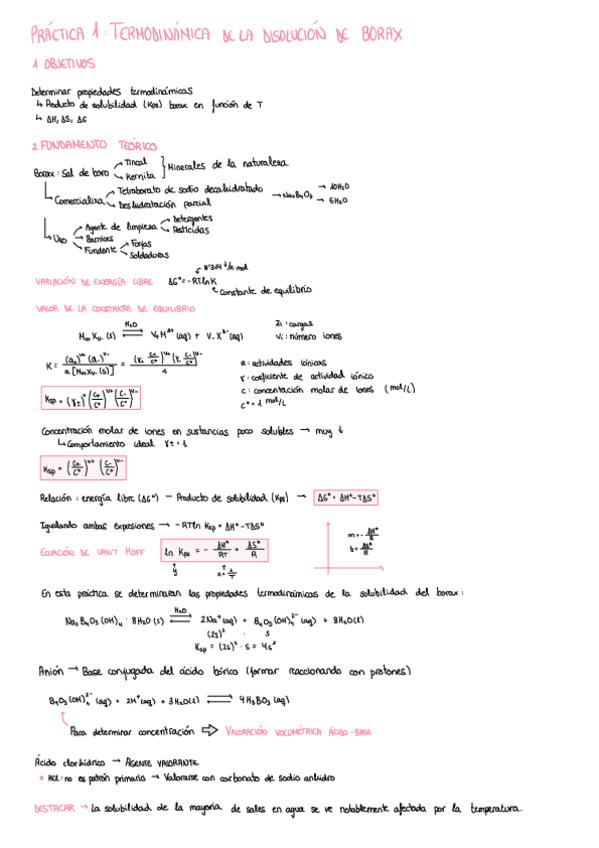 PRÁCTICA 1: TERMODINÁMICA DE LA DISOLUCIÓN DE BORAX
1 OBJETIVOS
Determinar propiedades termodinámicas
↳ Producto de solubilidad (Kps) borax en función de T
↳ ΔH, ΔS, ΔG
2 FUNDAMENTO TEÓRICO
Borax: Sal de boro → Tincal
→ Kernita } Minerales de la naturaleza
Comercializa → Tetraborato de sodio decahidratado → Na₂B₄O₇ → 10H₂O
→ Deshidratación parcial → 5H₂O
Uso → Agente de limpieza → Detergentes
→ Pesticidas
→ Barnices
→ Fundente → Forjas
→ Soldaduras
8'314 J/K·mol
VARIACIÓN DE ENERGÍA LIBRE ΔG° = -RTlnK
Constante de equilibrio
VALOR DE LA CONSTANTE DE EQUILIBRIO
H₂O
(s) ⇌ V₊M^Z+ (aq) + V₋X^Z- (aq)
Zi: cargas
Vi: número iones
a: actividades iónicas
γ: coeficiente de actividad iónico
c: concentración molar de iones (mol/L)
c° = 1 mol/L
Ksp = (γ±)^V (C₊/C°)^V+ (C₋/C°)^V-
Concentración molar de iones en sustancias poco solubles → muy ↓
↳ Comportamiento ideal γ± = 1
Ksp = (C₊/C°)^V+ (C₋/C°)^V-
Relación: energía libre (ΔG°) – Producto de solubilidad (Kps) → ΔG° = ΔH° - TΔS°
Igualando ambas expresiones → -RTln Ksp = ΔH° - TΔS°
ECUACIÓN DE VAN'T HOFF ln Kps = - ΔH°/RT + ΔS°/R
y x = 1/T
m = - ΔH°/R
b = ΔS°/R
En esta práctica se determinaran las propiedades termodinámicas de la solubilidad del borax:
H₂O
Na₂B₄O₅(OH)₄ · 8H₂O (s) ⇌ 2Na⁺(aq) + B₄O₅(OH)₄²⁻ (aq) + 8H₂O(l)
(2s)² · s
Ksp = (2s)² · s = 4s³
Anión → Base conjugada del ácido bórico (formar reaccionando con protones)
B₄O₅(OH)₄²⁻ (aq) + 2H⁺(aq) + 3H₂O(l) ⇌ 4H₃BO₃ (aq)
Para determinar concentración ⇒ VALORACIÓN VOLUMÉTRICA ÁCIDO-BASE
Ácido clorhídrico → AGENTE VALORANTE
* HCl: no es patrón primario → Valorarse con carbonato de sodio anhidro
DESTACAR → La solubilidad de la mayoría de sales en agua se ve notablemente afectada por la temperatura.